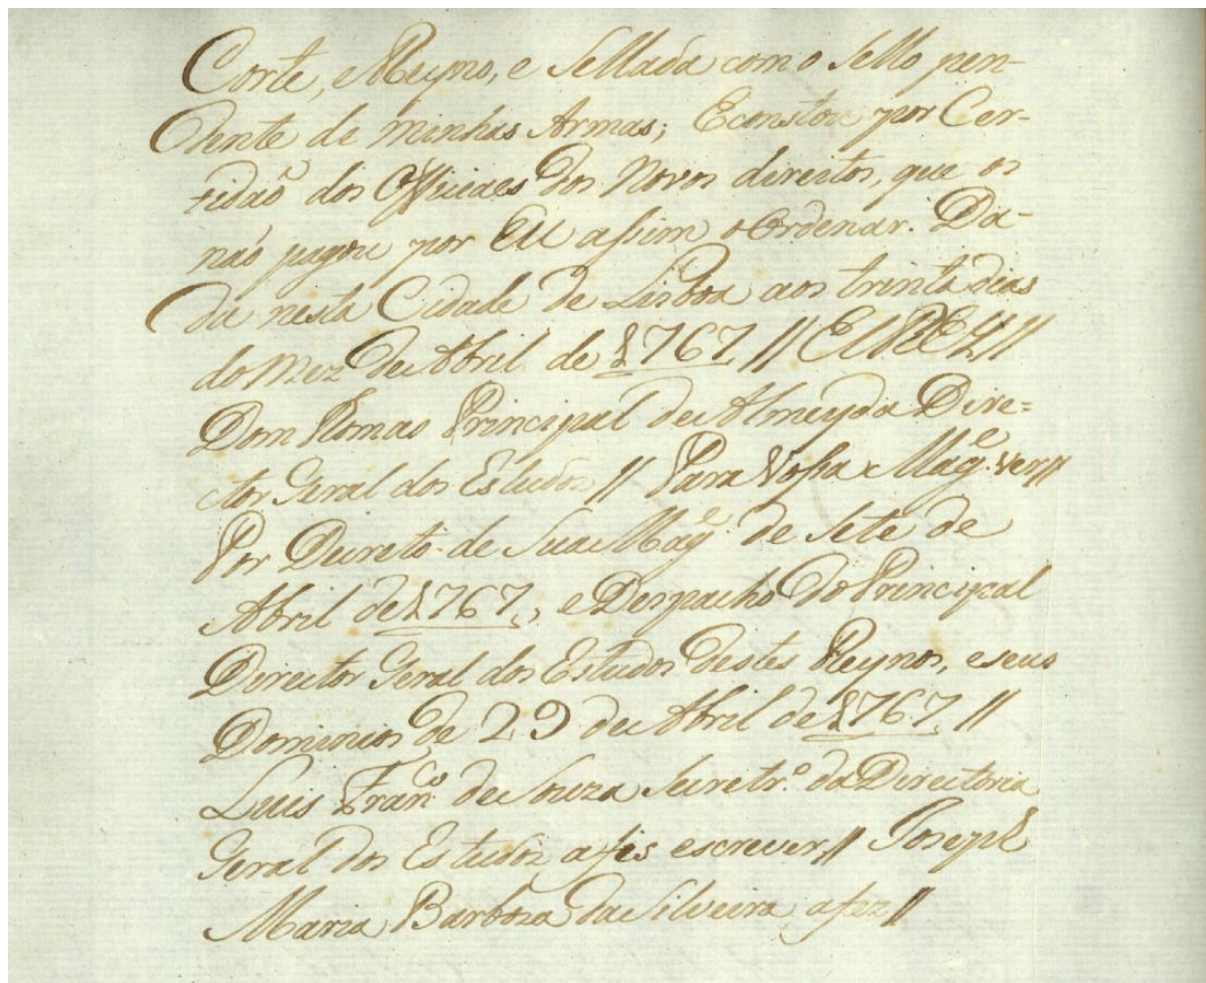 Corte, e Reyno, e Sellada com o Sello pen-
dente de minhas Armas; E constou por Cer-
tidaõ dos Officiaes dos Novos direitos, que os
naõ pagou por EU assim o Ordenar. Da-
da nesta Cidade de Lisboa aos trinta dias
do mez de Abril de 1767 // El REY //
Dom Thomas Principal de Almeyda Dire=
ctor Geral dos Estudos // Para Vossa Mag.e ver //
Por Decreto de Sua Mag.e de Sete de
Abril de 1767, e Despacho do Principal
Director Geral dos Estudos destes Reynos, e seus
Dominios de 29 de Abril de 1767 //
Luis Fran.co de Souza Secretr.o da Directoria
Geral dos Estudos a fes escrever // Joseph
Maria Barboza da Silveira a fez //